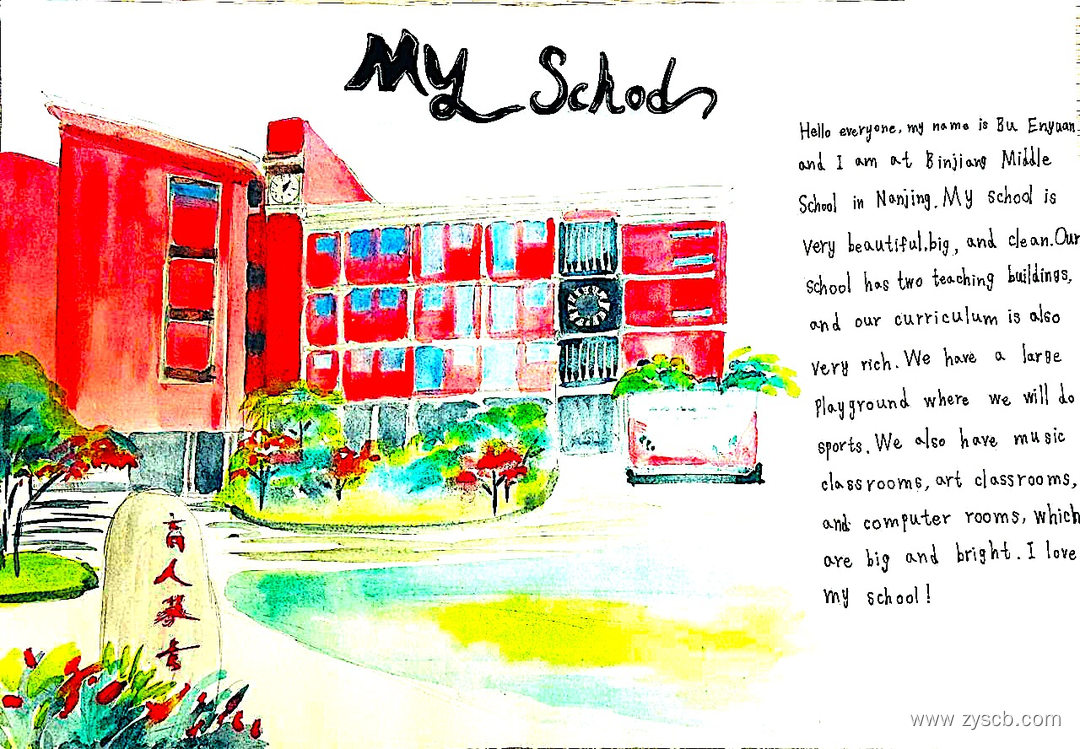 My School
Hello everyone, my name is Bu Enyuan
and I am at Binjiang Middle
School in Nanjing. My school is
very beautiful, big, and clean. Our
school has two teaching buildings,
and our curriculum is also
very rich. We have a large
playground where we will do
sports. We also have music
classrooms, art classrooms,
and computer rooms, which
are big and bright. I love
my school!
育
人
www.zyscb.com